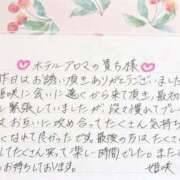 ホテルアロマの貴方様
昨日はお誘い頂きありがとうございました
昼咲に会いに遠くから来て頂き、最初
緊張していましたが、段々慣れて
はお互いに攻め合ってたくさん気持ち
くなれて良かったです。最後の方は
たくさん笑って楽しい時間でした。また
お待ちしております。
姫咲